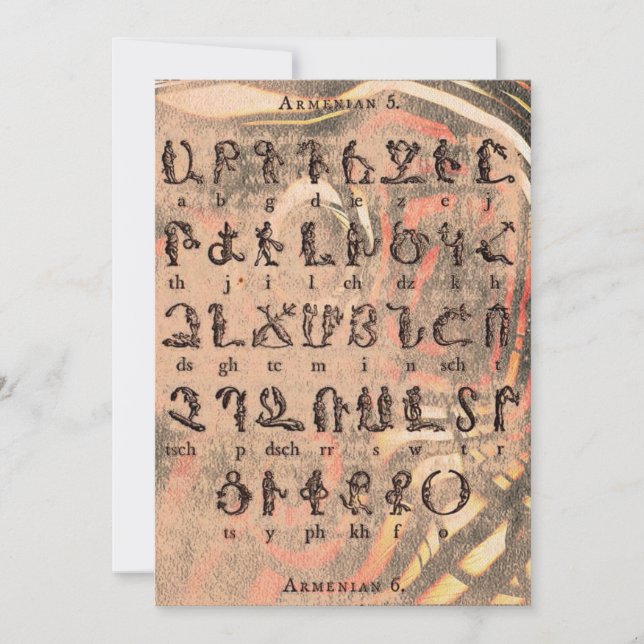 ARMENIAN 5.
Ա Բ Գ Դ Ե Զ Է Ը
a b g d ie z e j
Թ Ժ Ի Լ Խ Ծ Կ Հ
th j i l ch dz k h
Ձ Ղ Ճ Մ Յ Ն Շ Ո
ds gh tc m i n sch t
Չ Պ Ջ Ռ Ս Վ Տ Ր
tsch p dsch rr s w t r
Ց Ւ Փ Ք Ֆ Օ
ts y ph kh f o
ARMENIAN 6.